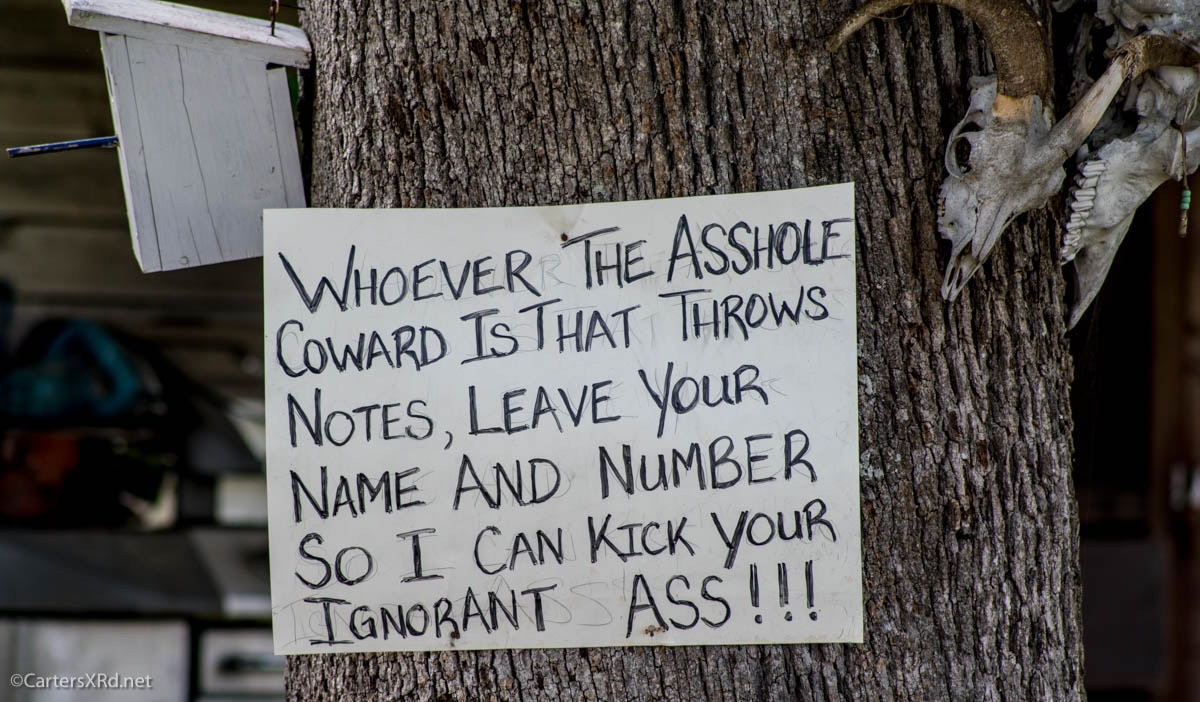 WHOEVER THE ASSHOLE
COWARD IS THAT THROWS
NOTES, LEAVE YOUR
NAME AND NUMBER
SO I CAN KICK YOUR
IGNORANT ASS!!!
©CartersXRd.net